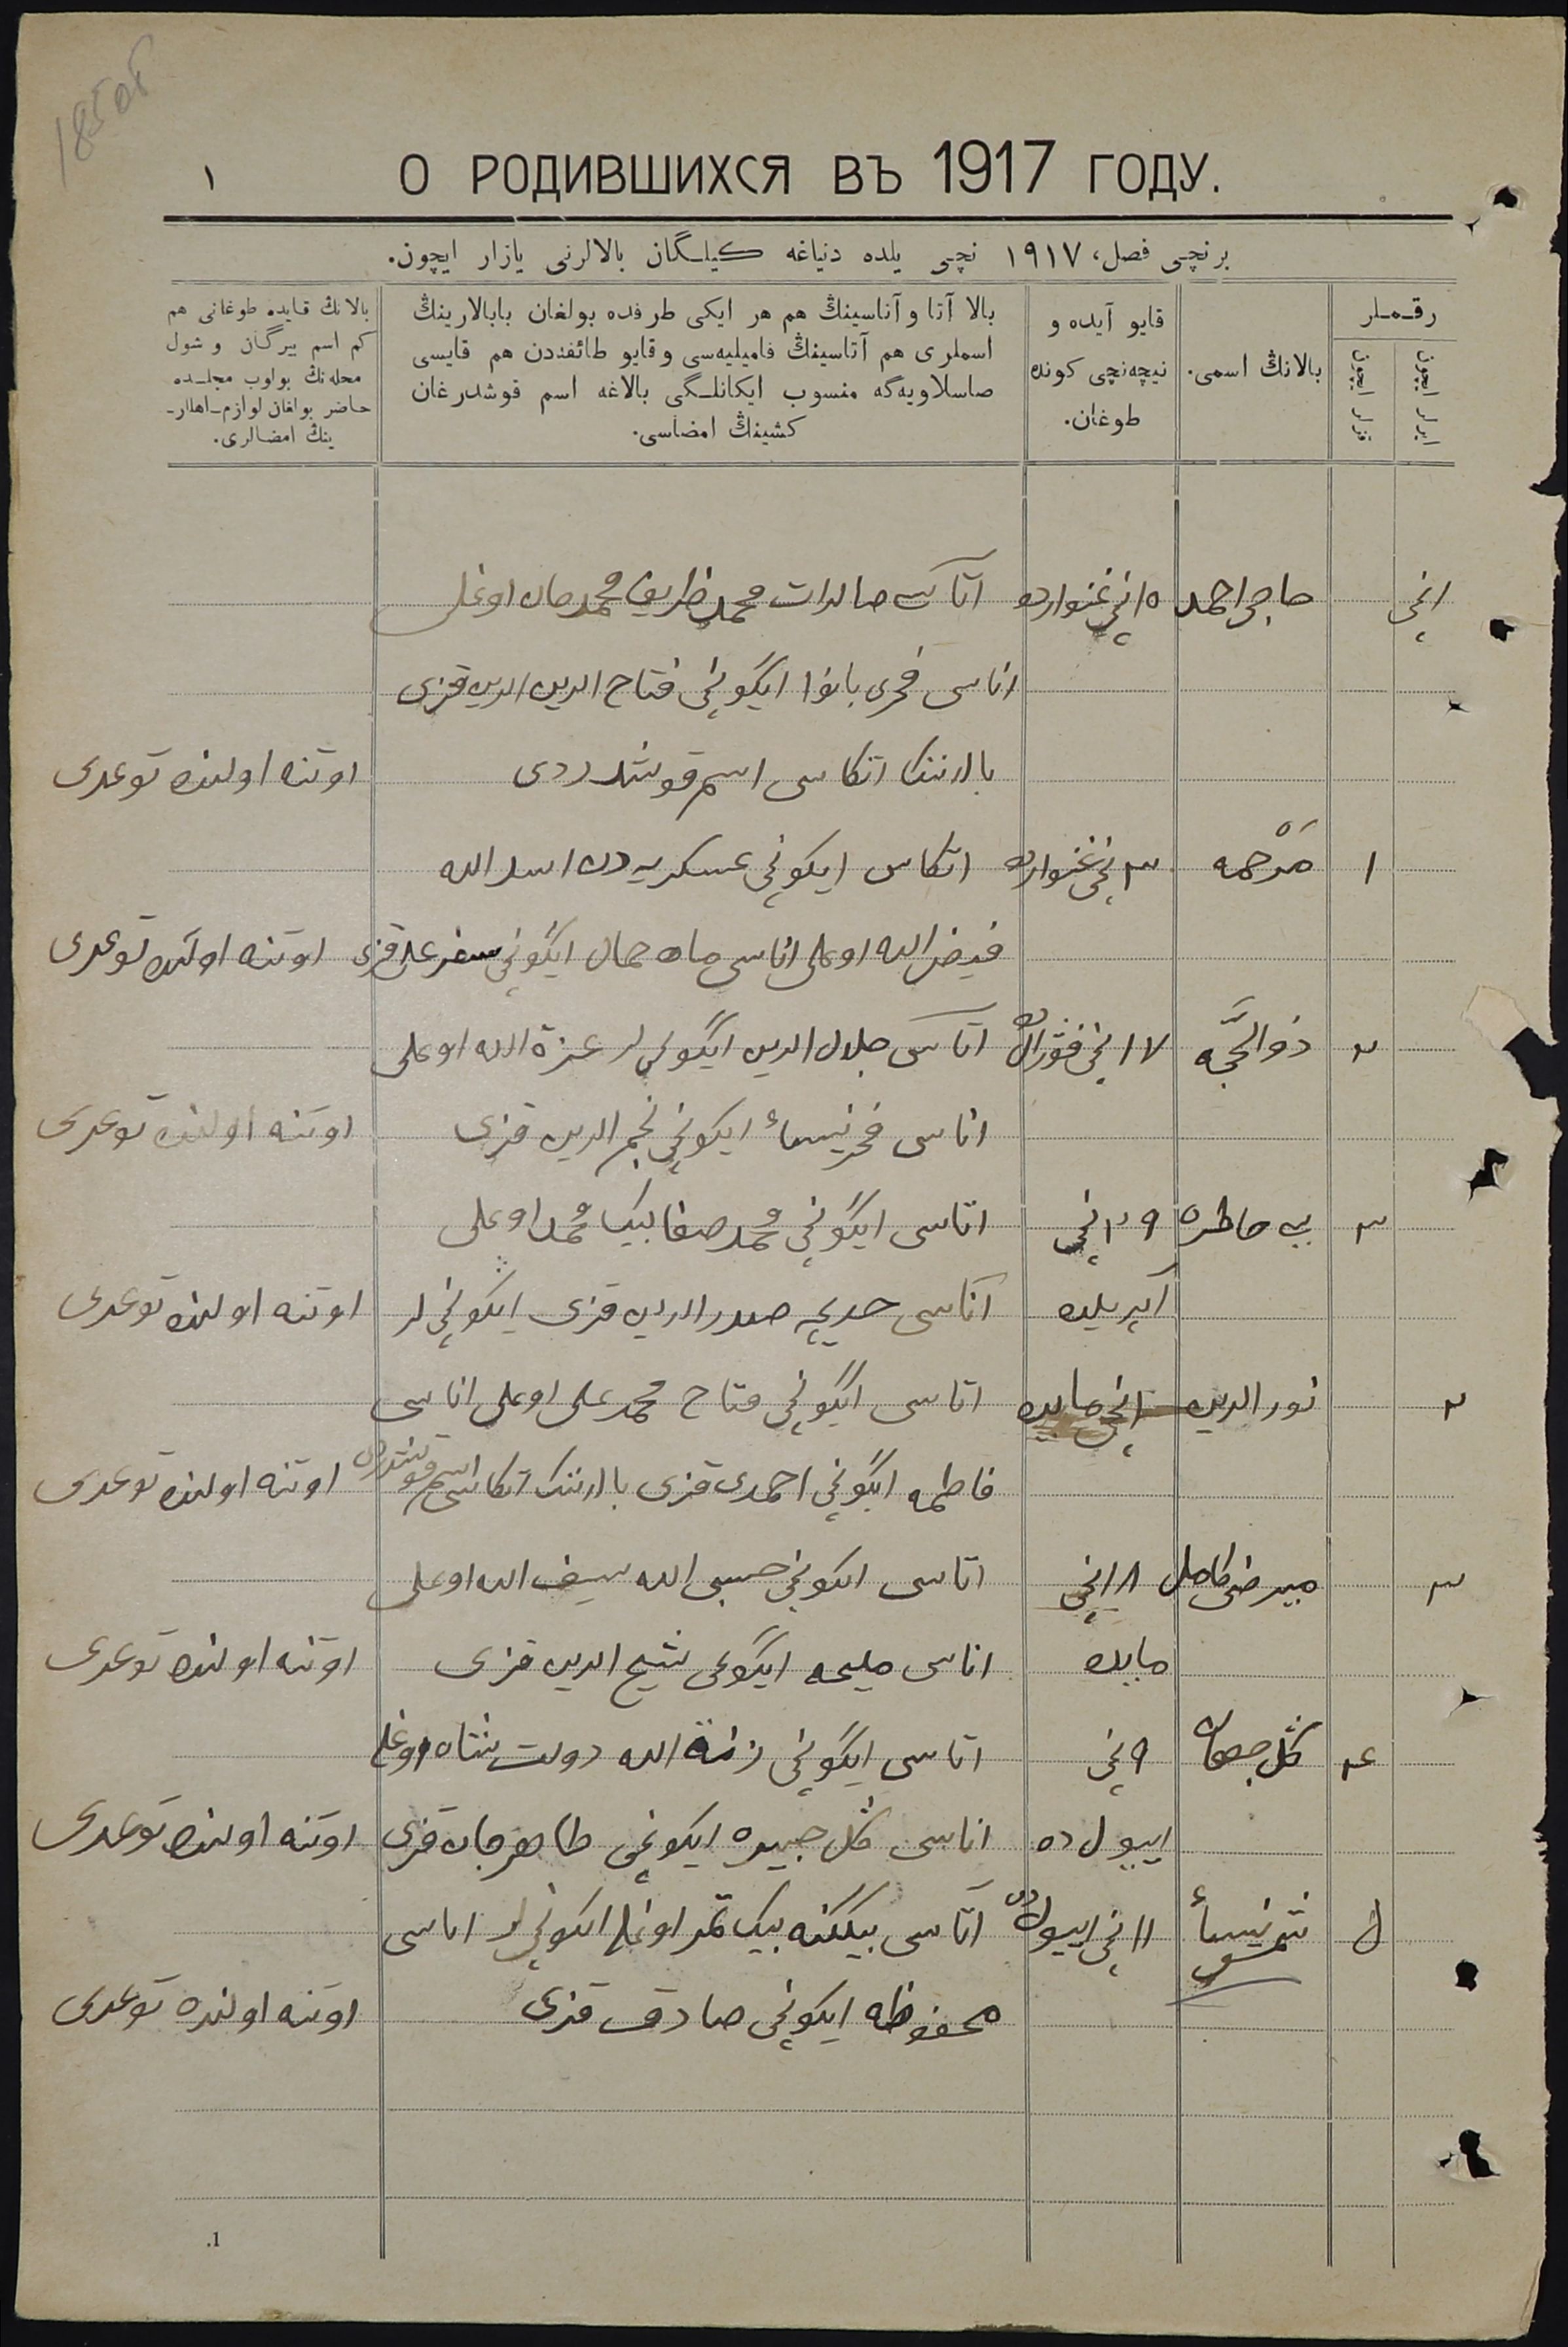 О РОДИВШИХСЯ ВЪ 1917 ГОДУ.
١
برنچی فصل، ١٩١٧ نچی یلده دنیاغه کیلگان بالالرنی یازار ایچون.
رقملر
ایرلر ایچون
قزلر ایچون
بالانڭ اسمی.
قایو آیده و
نیچه‌نچی کونده
طوغان.
بالا آتا و آناسینڭ هم هر ایکی طرفده بولغان بابالارینڭ
اسملری هم آتاسینڭ فامیلیه‌سی و قایو طائفه‌دن هم قایسی
صاسلاویه‌گه منسوب ایکانلگی بالاغه اسم قوشدرغان
کشینڭ امضاسی.
بالانڭ قایده طوغانی هم
کم اسم بیرگان و شول
محله‌نڭ بولوب مجلسده
حاضر بولغان لوازم‌اهللر-
ینڭ امضالری.
١نچی حاجی احمد ١٥نچی غنواردہ اتاسی صالدات محمد ظریف محمدجان اوغلی
اناسی فخری بانو ایگونچی فتاح الدین قزی
بالاننک اتکاسی اسم قوشدردی اوتنه اولنده توغدی
١ مرحمه غنوارده اتکاسی ایکونچی عسکریه دن اسد الله
فیض الله اوغلی اناسی ماه جمال ایگونچی سفر علی قزی اوتنه اولنده توغدی
٢ ذو الحجه ١٧نچی فیورال ده اتاسی جلال الدین ایگونچی لر عزة الله اوغلی
اناسی فخرنیساء ایکونچی نجم الدین قزی اوتنه اولنده توغدی
٣ بی خاطره اتاسی ایگونچی محمد صفا بیک محمد اوغلی
اپریلده اناسی خدیجه صدر الدین قزی ایگونچی لر اوتنه اولنده توغدی
٢ نور الدین ١نچی مایده اتاسی ایگونچی فتاح محمد علی اوغلی اناسی
فاطمه ایگونچی احمدی قزی بالاننک اتکاسی اسم قوشدردی اوتنه اولنده توغدی
٣ میرضی کامل ١٨نچی اتاسی ایگونچی حسبی الله سیف الله اوغلی
مایده اناسی ملیحه ایگونچی شیخ الدین قزی اوتنه اولنده توغدی
٤ گل جهان ٩نچی اتاسی ایگونچی زینة الله دولت شاه اوغلی
اییول ده اناسی گل جبیره ایکونچی طاهرجان قزی اوتنه اولنده توغدی
٥ شمرنیساء ١١نچی اییول ده اتاسی بیککنه بیک تمر اوغلی ایگونچی لر اناسی
محفوظه ایگونچی صادق قزی اوتنه اولنده توغدی
1.